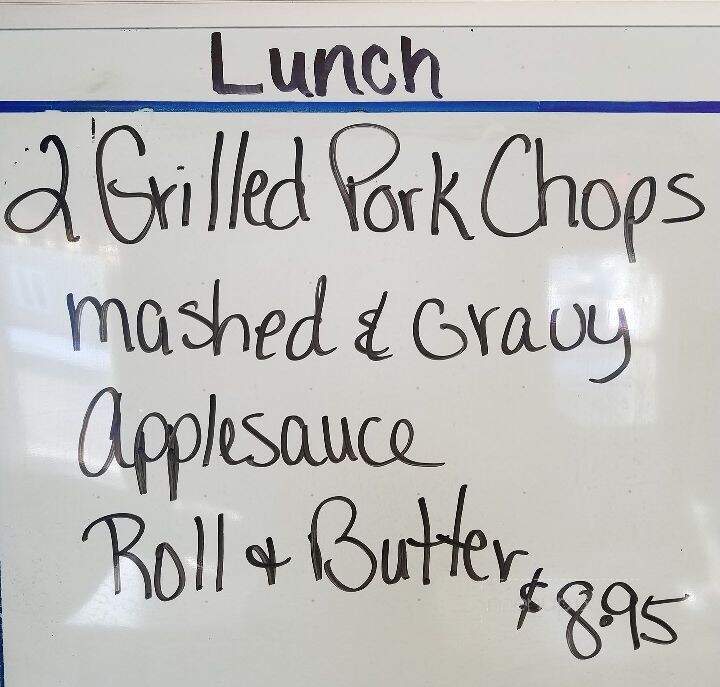 Lunch
2 Grilled Pork Chops
mashed & Gravy
Applesauce
Roll & Butter
$8.95